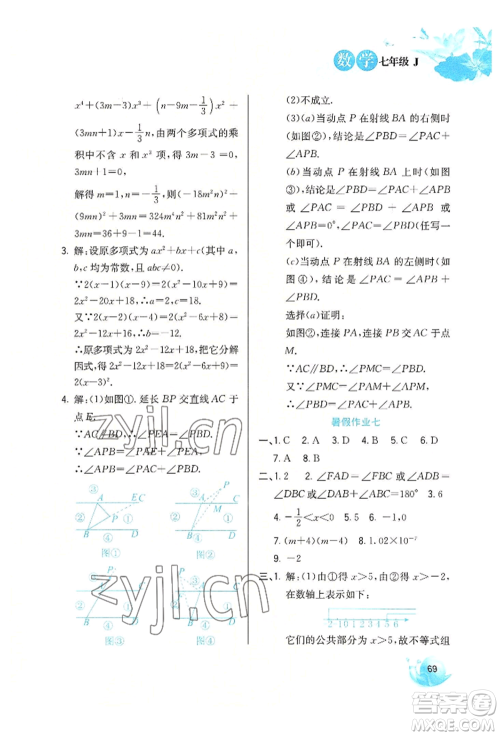 数学七年级 J
x⁴+(3m-3)x³+(n-9m-1/3)x²+
(3mn+1)x-3n,由两个多项式的乘
积中不含 x 和 x³ 项,得 3m-3=0,
3mn+1=0,
解得 m=1,n=-1/3,(-18m²n)²+
(9mn)²+(3m)²⁰¹⁴n²⁰¹⁶=
3mn+1=0
3. 解:设原多项式为 ax²+bx+c(其中 a,
b,c 均为常数,且 abc≠0).
∵2(x-1)(x-9)=2(x²-10x+9)=
2x²-20x+18,∴a=2,c=18.
又∵2(x-2)(x-4)=2(x²-6x+8)=
2x²-12x+16,∴b=-12.
∴原多项式为 2x²-12x+18,把它分解
因式,得 2x²-12x+18=2(x²-6x+9)=
2(x-3)².
4. 解:(1)如图①,延长 BP 交直线 AC 于
点 E.
∵AC∥BD,∴∠PEA=∠PBD.
∵∠APB=∠PAE+∠PEA,
∴∠APB=∠PAC+∠PBD.
图① 图②
图③ 图④
(2)不成立.
(3)(a)当动点 P 在射线 BA 的右侧时
(如图②),结论是∠PBD=∠PAC+
∠APB.
(b)当动点 P 在射线 BA 上时(如图
③),结论是∠PBD=∠PAC+
∠APB 或∠PAC=∠PBD+∠APB 或
∠APB=0°,∠PAC=∠PBD(任写一
个即可).
(c)当动点 P 在射线 BA 的左侧时(如
图④),结论是∠PAC=∠APB+
∠PBD.
选择(a)证明:
如图②,连接 PA,连接 PB 交 AC 于点
M.
∵AC∥BD,∴∠PMC=∠PBD.
又∵∠PMC=∠PAM+∠APM,
∴∠PBD=∠PAC+∠APB.
暑假作业七
一、1. C 2. A 3. B 4. C 5. C 6. D
7. A 8. D
二、1. 2 2. ∠FAD=∠FBC/∠ADB=
∠DBC/∠DAB+∠ABC=180° 3. 6
4. -1/2<x<0 5. 5 6. 2
7. (n+4)(mn-4) 8. 1.02×10⁻⁷
9. -2
三、1. 解:由①得 x>5,由②得 x≥-2,
在数轴上表示如下:
-2 1 0 1 2 3 4 5 6
它们的公共部分为 x>5,故不等式组
69
zyjl.cn